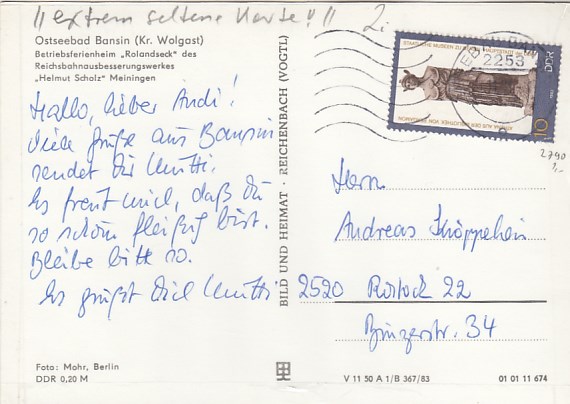 "extrem seltene Karte!!" 2,-
Ostseebad Bansin (Kr. Wolgast)
Betriebsferienheim „Rolandseck" des
Reichsbahnausbesserungswerkes
„Helmut Scholz" Meiningen
Hallo, lieber Andi!
Viele Grüße aus Bansin
sendet dir Mutti.
Es freut mich, daß du
so schön fleißig bist.
Bleibe bitte so.
Es grüßt dich Mutti
Foto: Mohr, Berlin
DDR 0,20 M
BILD UND HEIMAT · REICHENBACH (VOGTL)
STAATLICHE MUSEEN ZU
DDR
10
2253
2790
1,-
Herrn
Andreas Knöppchen
2520 Rostock 22
Binzerstr. 34
V 11 50 A 1/B 367/83
01 01 11 674